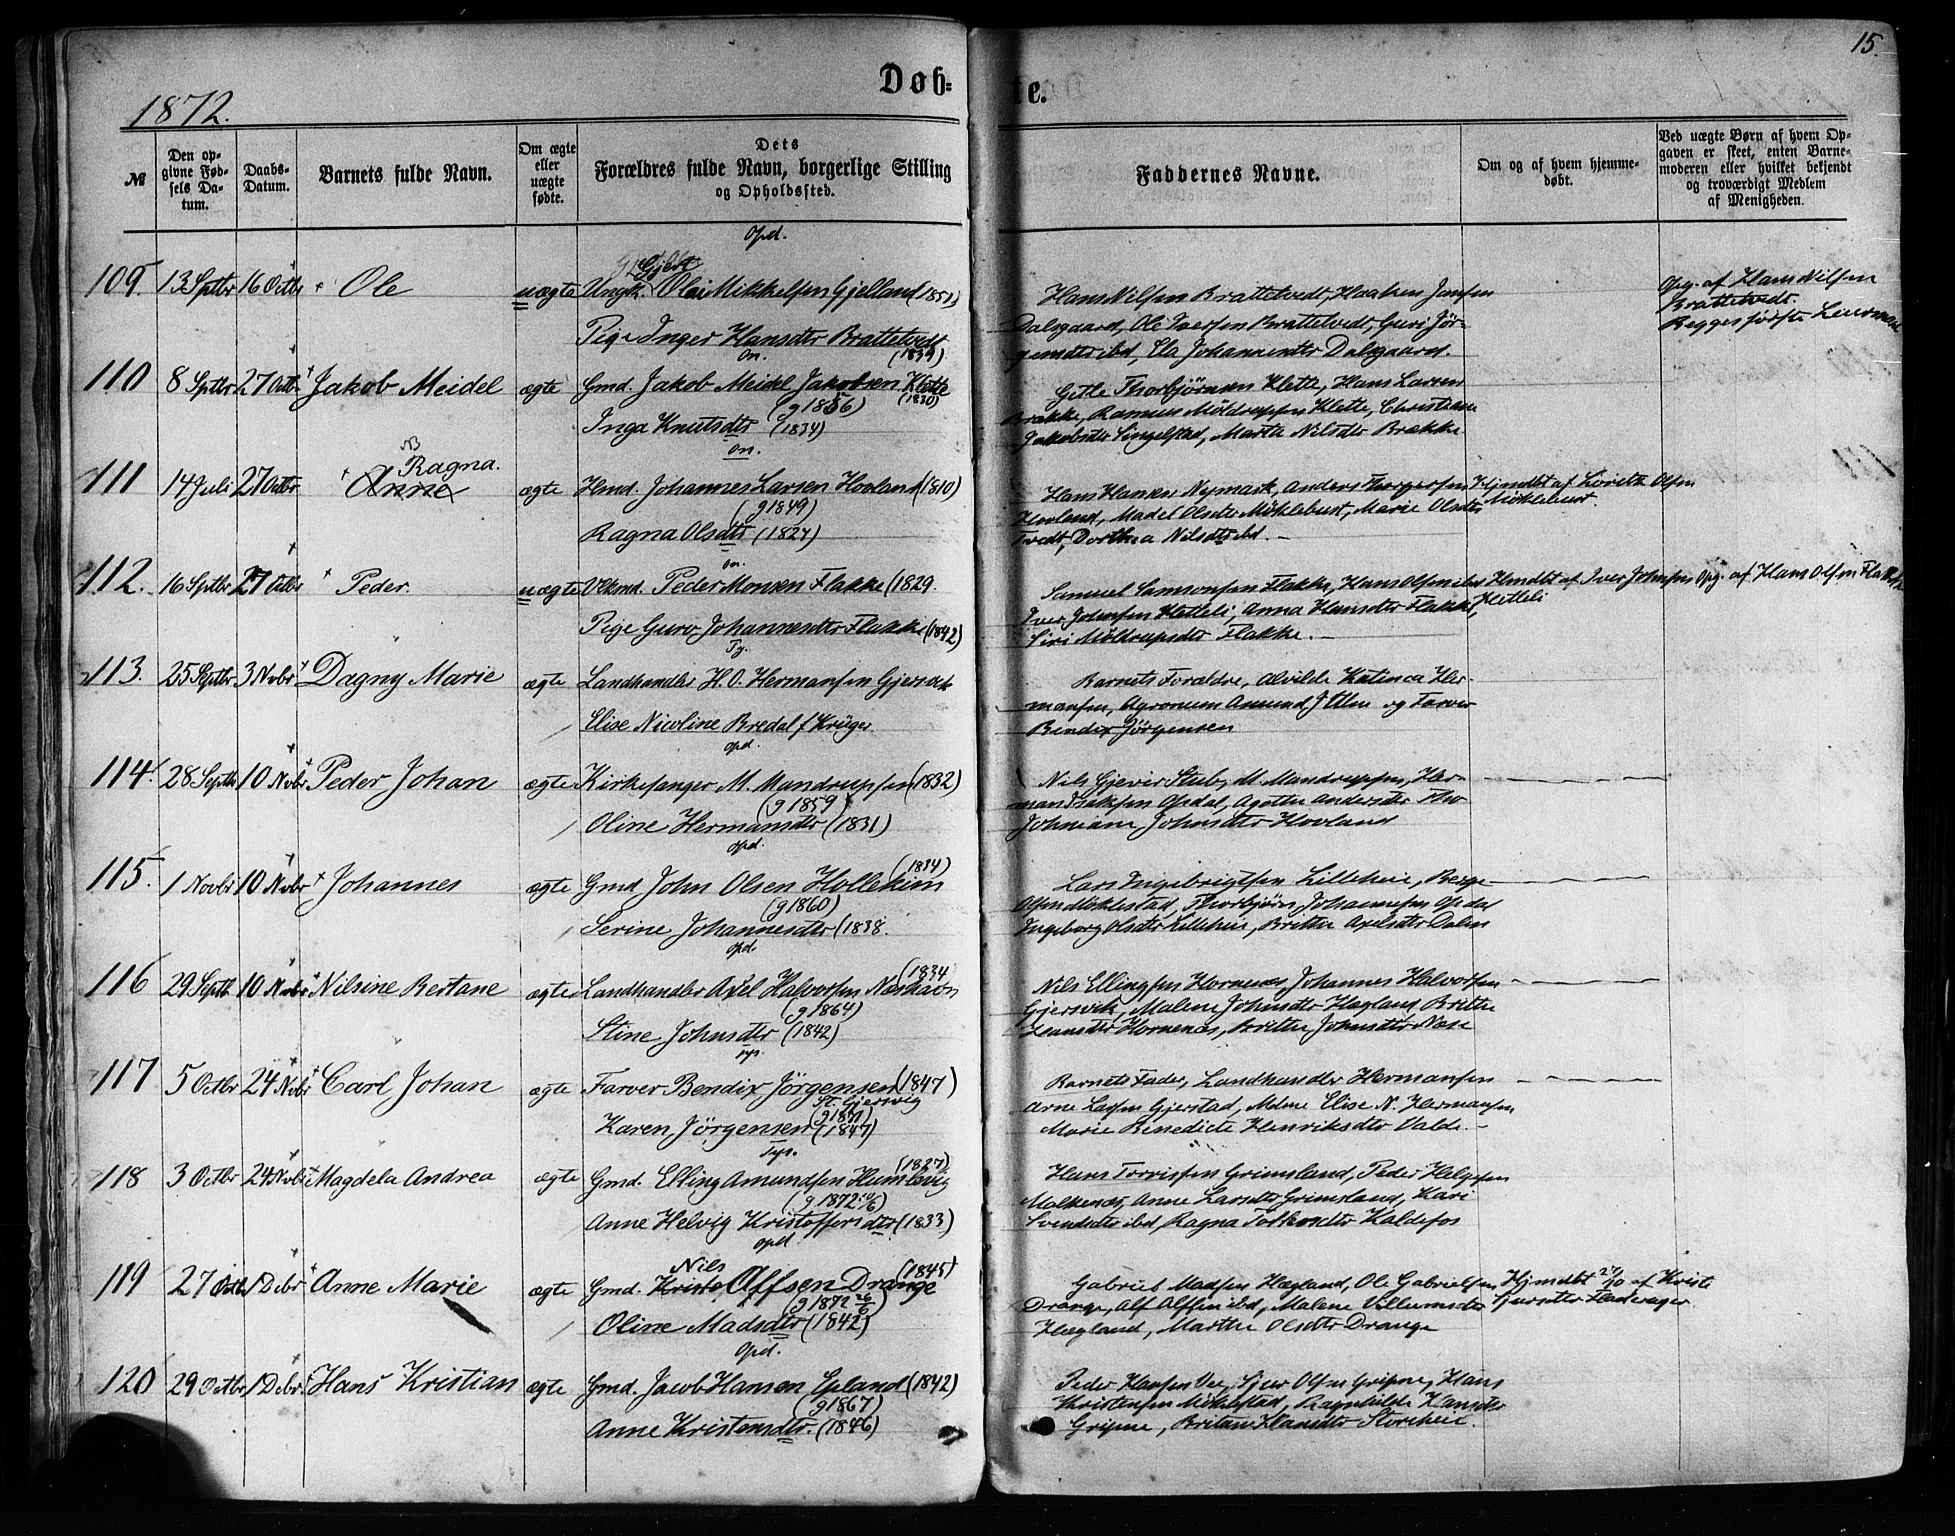 15.
Døb=
te.
1872.
№
Den op-
givne Fød-
sels Da-
tum.
Daabs-
Datum.
Barnets fulde Navn.
Om ægte
eller
uægte
fødte.
Dets
Forældres fulde Navn, borgerlige Stilling
og Opholdssted.
Faddernes Navne.
Om og af hvem hjemme-
døbt.
Ved uægte Børn af hvem Op-
gaven er skeet, enten Barne-
moderen eller hvilket bekjendt
og troværdigt Medlem
af Menigheden.
Opd.
Gjert
109. 13 Septbr 16 Octbr Ole uægte Ungk. Mikkelsen Gjelland (1851)
Pige Inger Hansdtr Brattetvedt
(1839)
Hans Nilsen Brattetvedt, Haaken Jansen
Dalsgaard, Ole Iversen Brattetvedt, Guri Jør-
gensdtr ibd, Ela Johannesdtr Dalsgaard.
Opg. af Hans Nilsen
Brattetvedt.
Begges første Leierm
On.
110 8 Septbr 27 Octbr Jakob Meidel ægte Gmd. Jakob Meidel Jakobsen Klette
(1830)
(g 1856)
Inga Knutsdtr (1834)
Gitle Thorbjørnsen Klette, Hans Larsen
Brække, Rasmus Möldrupsen Klette, Christiane
Jakobsdtr Singelstad, Marta Nilsdtr Brække.
On.
NB
Ragna.
111 14 Juli 27 Octbr Anne ægte Hmd. Johannes Larsen Hovland (1810)
(g 1849)
Ragna Olsdtr (1824)
Hans Hansen Nymark, Anders Thorgersen
Hovland, Madel Olsdtr Möklebust, Marie Olsdtr
Tvedt, Dorthea Nilsdtr ibd. —
Hjmdbt af Olsen
Möklebust.
On.
112. 16 Septbr 27 Octbr Peder. uægte Peder Monsen Flakke (1829.
Pige Guro Johannesdtr Flakke (1842)
Samuel Samsonsen Flakke, Hans Olsen ibd
Iver Johnsen Hetleli, Anna Hansdtr Flakke,
Siri Möldrupsdtr Flakke. —
Hmdbt af Iver Johnsen
Hetleli
Opg. af Hans Olsen Flakke
Ty.
113. 25 Septbr 3 Novbr Dagny Marie ægte Landhandler H. O. Hermansen Gjersvik
Elise Nicoline Bredal f. Krüger
Barnets Forældre, Alvilde Katinca Her-
mansen, Agronom Amund J. Ulen og Farver
Bendix Jörgensen
Opd.
114. 28 Septbr 10 Novbr Peder Johan ægte Kirkesanger M. Mandrupsen (1832)
(g 1859)
Oline Hermansdtr (1831)
Nils Gjever Stub, M. Mandrupsen, Her-
man Isaksen Opdal, Agathe Andersdtr
Johniane Johnsdtr Hovland
Opd.
115. 1 Novbr 10 Novbr Johannes ægte Gmd John Olsen Holleheim
(1834)
(g 1860)
Serine Johannesdtr (1838.
Lars Ingebrigtsen Lilleheie, Berge
Olsen Möklestad, Thorbjörn Johannesen Opdal
Ingeborg Olsdtr Lilleheie, Brithe Axelsdtr Dalen
Opd.
116 29 Septb. 10 Novbr Nilsine Bertane ægte Landhandler Axel Halvorsen Neshavn
(1834
(g 1864)
Stine Johnsdtr (1842)
Nils Ellingsen Hornenæs, Johannes Halvorsen
Gjersvik, Malene Johnsdtr Hægland Brithe
Hansdtr Hornenæs, Brithe Johnsdtr Næse
Tys.
117 5 Octbr 24 Novbr Carl Johan ægte Farver Bendix Jörgensen (1847)
St. Gjersvig
(g 1871)
Karen Jörgensen (1847)
Barnets Fader, Landhandler Hermansen
Arne Larsen Gjerstad, Mdme Elise N. Hermansen
Marie Benedicte Henriksdtr Valde. —
Tys.
118 3 Octbr 24 Novbr Magdela Andrea ægte Gmd. Elling Amundsen Humlevig
(1827)
(g 1872
Anne Helvig Kristoffersdtr (1833)
Hans Torrissen Grimsland, Peder Helgesen
Malkenæs, Anne Larsdtr Grimsland, Kari
Svendsdtr ibd, Ragna Tolleivsdtr Kaldefos
Opd.
Nils
119 27 Octbr 1 Debr Anne Marie ægte Gmd. Kristo. Alfsen Drange
(1845)
(g 1872 26/6)
Oline Madsdtr (1842)
Gabriel Madsen Hægland, Ole Gabrielsen
Drange, Alf Alfsen ibd, Malene Villumsdtr
Hægland, Marthe Olsdtr Drange
Hjmdbt 29/10 af Kristi
Sjursdtr Fladerager
Opd.
120 29 Octbr 1 Debr. Hans Kristian ægte Gmd. Jacob Hansen Epland (1842)
(g 1867)
Anne Kristensdtr. (1846)
Peder Hansen Vee, Sjur Olsen Gripne, Hans
Kristensen Möklestad, Ragnhilde Hansdtr
Gripne, Britane Hansdtr Storeheie.